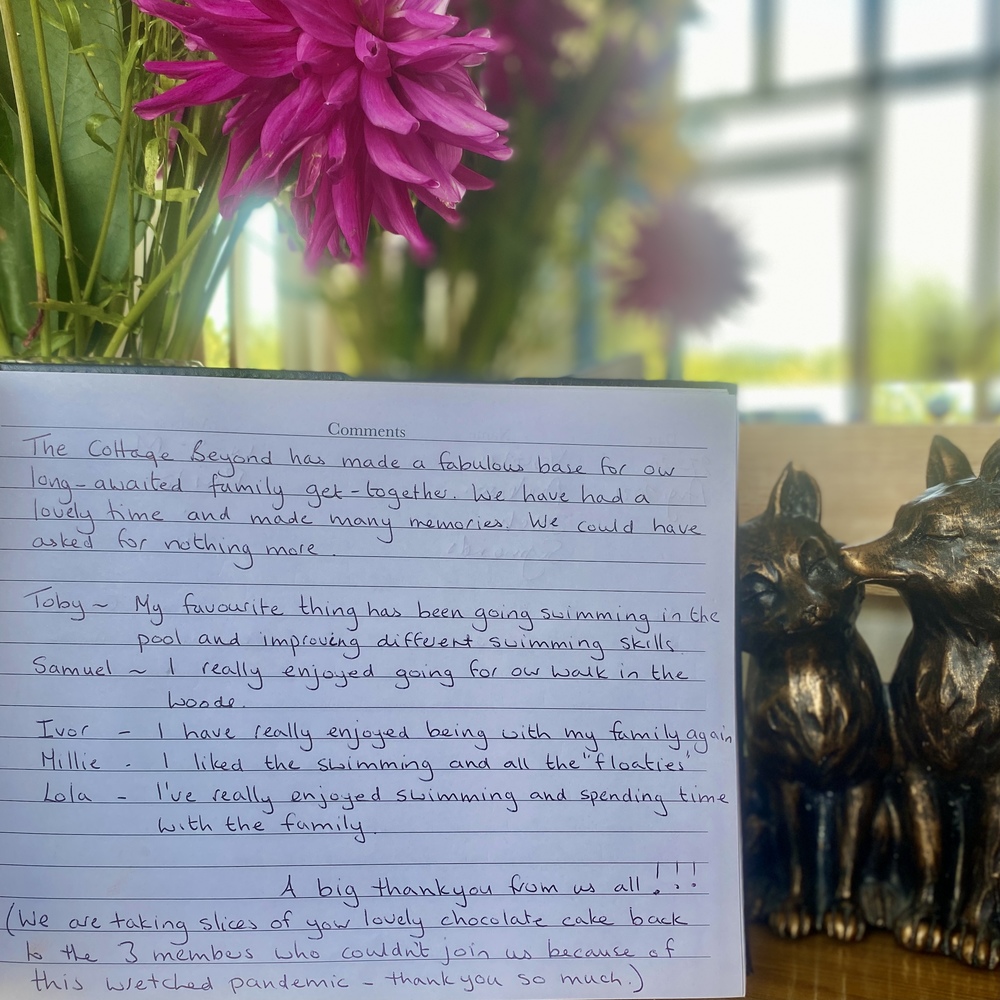 Comments
The Cottage Beyond has made a fabulous base for our
long-awaited family get-together. We have had a
lovely time and made many memories. We could have
asked for nothing more.
Toby ~ My favourite thing has been going swimming in the
pool and improving different swimming skills
Samuel ~ I really enjoyed going for our walk in the
woods.
Ivor - I have really enjoyed being with my family again
Millie - I liked the swimming and all the "floaties"
Lola - I've really enjoyed swimming and spending time
with the family.
A big thankyou from us all!!!
(We are taking slices of your lovely chocolate cake back
to the 3 members who couldn't join us because of
this wretched pandemic - thankyou so much.)